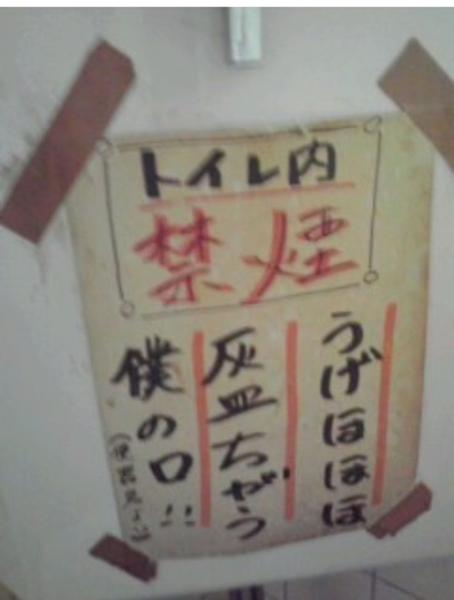 トイレ内
禁煙
うげほほほ
灰皿ちゃう
僕の口!!